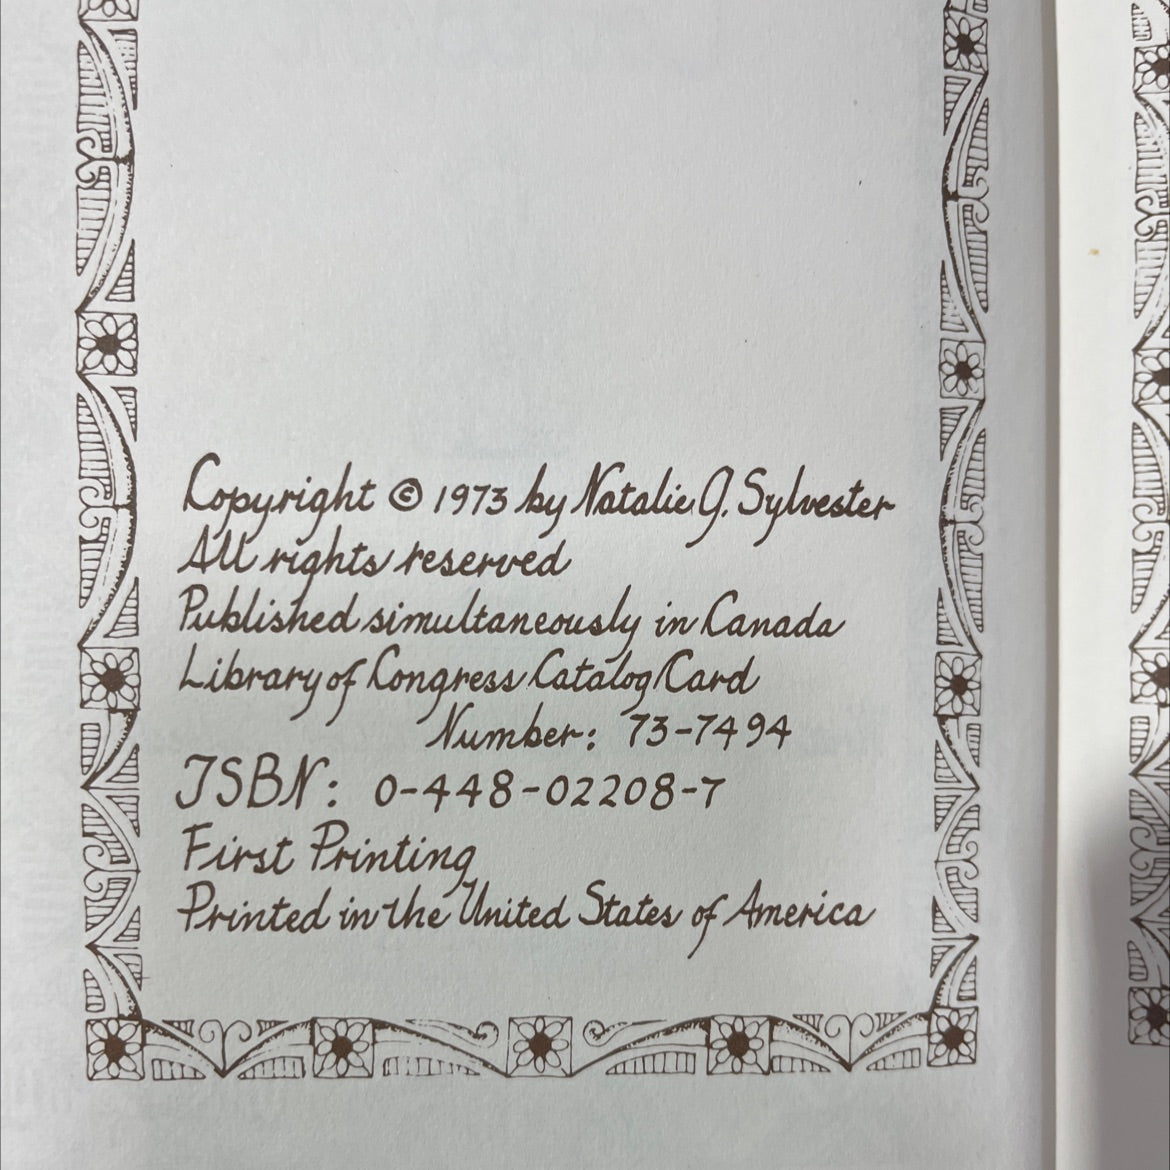 Copyright © 1973 by Natalie G. Sylvester
All rights reserved
Published simultaneously in Canada
Library of Congress Catalog Card
Number: 73-7494
ISBN: 0-448-02208-7
First Printing
Printed in the United States of America